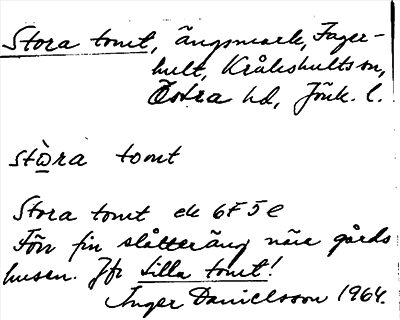 Stora tomt, ängsmark, Fager-
hult, Kråkshults sn,
Östra hd, Jönk. l.
stòra tomt
Stora tomt ek 6F5e
Förr fin slåtteräng nära gårds
husen. Jfr Lilla tomt!
Inger Danielsson 1964.